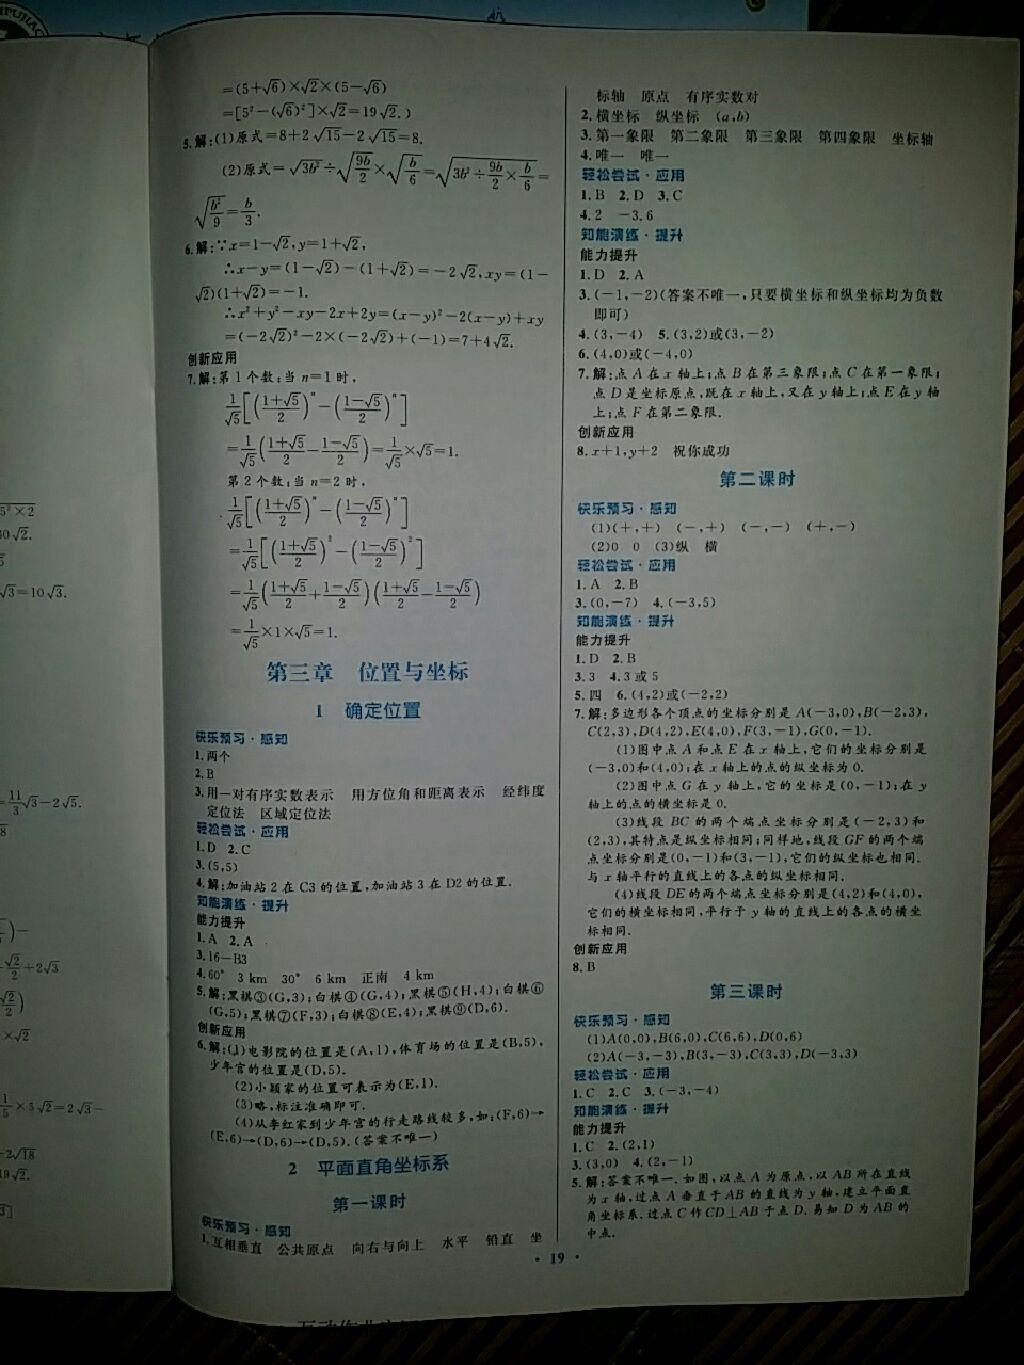 =(5+√6)×√2×(5-√6)
=[5²-(√6)²]×√2=19√2.)
5.解:(1)原式=8+2√15-2√15=8.
(2)原式=√3b²÷√(9b/2)×√(b/6)=√(3b²÷9b/2×b/6)=
√(b²/9)=b/3.
6.解:∵x=1-√2,y=1+√2,
∴x-y=(1-√2)-(1+√2)=-2√2,xy=(1-
√2)(1+√2)=-1.
∴x²+y²-xy-2x+2y=(x-y)²-2(x-y)+xy
=(-2√2)²-2×(-2√2)+(-1)=7+4√2.
创新应用
7.解:第1个数:当n=1时,
1/√5[((1+√5)/2)ⁿ-((1-√5)/2)ⁿ]
=1/√5((1+√5)/2-(1-√5)/2)=1/√5×√5=1.
第2个数:当n=2时,
1/√5[((1+√5)/2)ⁿ-((1-√5)/2)ⁿ]
=1/√5[((1+√5)/2)²-((1-√5)/2)²]
=1/√5((1+√5)/2+(1-√5)/2)((1+√5)/2-(1-√5)/2)
=1/√5×1×√5=1.
第三章 位置与坐标
1 确定位置
快乐预习·感知
1.两个
2.B
3.用一对有序实数表示 用方位角和距离表示 经纬度
定位法 区域定位法
轻松尝试·应用
1.D 2.C
3.(5,5)
4.解:加油站2在C3的位置,加油站3在D2的位置.
知能演练·提升
能力提升
1.A 2.A
3.16-B3
4.60° 3 km 30° 6 km 正南 4 km
5.解:黑棋③(G,3);白棋④(G,4);黑棋⑤(H,4);白棋⑥
(G,5);黑棋⑦(F,3);白棋⑧(E,4);黑棋⑨(D,6).
创新应用
6.解:(1)电影院的位置是(A,1),体育场的位置是(B,5),
少年宫的位置是(D,5).
(2)小颖家的位置可表示为(E,1).
(3)略,标注准确即可.
(4)从李红家到少年宫的行走路线较多,如:(F,6)→
(E,6)→(D,6)→(D,5).(答案不唯一)
2 平面直角坐标系
第一课时
快乐预习·感知
1.互相垂直 公共原点 向右与向上 水平 铅直 坐
标轴 原点 有序实数对
2.横坐标 纵坐标 (a,b)
3.第一象限 第二象限 第三象限 第四象限 坐标轴
4.唯一 唯一
轻松尝试·应用
1.B 2.D 3.C
4.2 -3,6
知能演练·提升
能力提升
1.D 2.A
3.(-1,-2)(答案不唯一,只要横坐标和纵坐标均为负数
即可)
4.(3,-4) 5.(3,2)或(3,-2)
6.(4,0)或(-4,0)
7.解:点A在x轴上;点B在第三象限;点C在第一象限;
点D是坐标原点,既在x轴上,又在y轴上;点E在y轴
上;点F在第二象限.
创新应用
8.x+1,y+2 祝你成功
第二课时
快乐预习·感知
(1)(+,+) (-,+) (-,-) (+,-)
(2)0 0 (3)纵 横
轻松尝试·应用
1.A 2.B
3.(0,-7) 4.(-3,5)
知能演练·提升
能力提升
1.D 2.B
3.3 4.3或5
5.四 6.(4,2)或(-2,2)
7.解:多边形各个顶点的坐标分别是A(-3,0),B(-2,3),
C(2,3),D(4,2),E(4,0),F(3,-1),G(0,-1).
(1)图中点A和点E在x轴上,它们的坐标分别是
(-3,0)和(4,0);在x轴上的点的纵坐标为0.
(2)图中点G在y轴上,它的坐标是(0,-1);在y
轴上的点的横坐标是0.
(3)线段BC的两个端点坐标分别是(-2,3)和
(2,3),其特点是纵坐标相同;同样地,线段GF的两个端
点坐标分别是(0,-1)和(3,-1),它们的纵坐标也相同.
与x轴平行的直线上的各点的纵坐标相同.
(4)线段DE的两个端点坐标分别是(4,2)和(4,0),
它们的横坐标相同,平行于y轴的直线上的各点的横坐
标相同.
创新应用
8.B
第三课时
快乐预习·感知
(1)A(0,0),B(6,0),C(6,6),D(0,6)
(2)A(-3,-3),B(3,-3),C(3,3),D(-3,3)
轻松尝试·应用
1.C 2.C 3.(-3,-4)
知能演练·提升
能力提升
1.C 2.(2,1)
3.(3,0) 4.(2,-1)
5.解:答案不唯一.如图,以点A为原点,以AB所在直线
为x轴,过点A垂直于AB的直线为y轴,建立平面直
角坐标系.过点C作CD⊥AB于点D.易知D为AB的
中点.
19